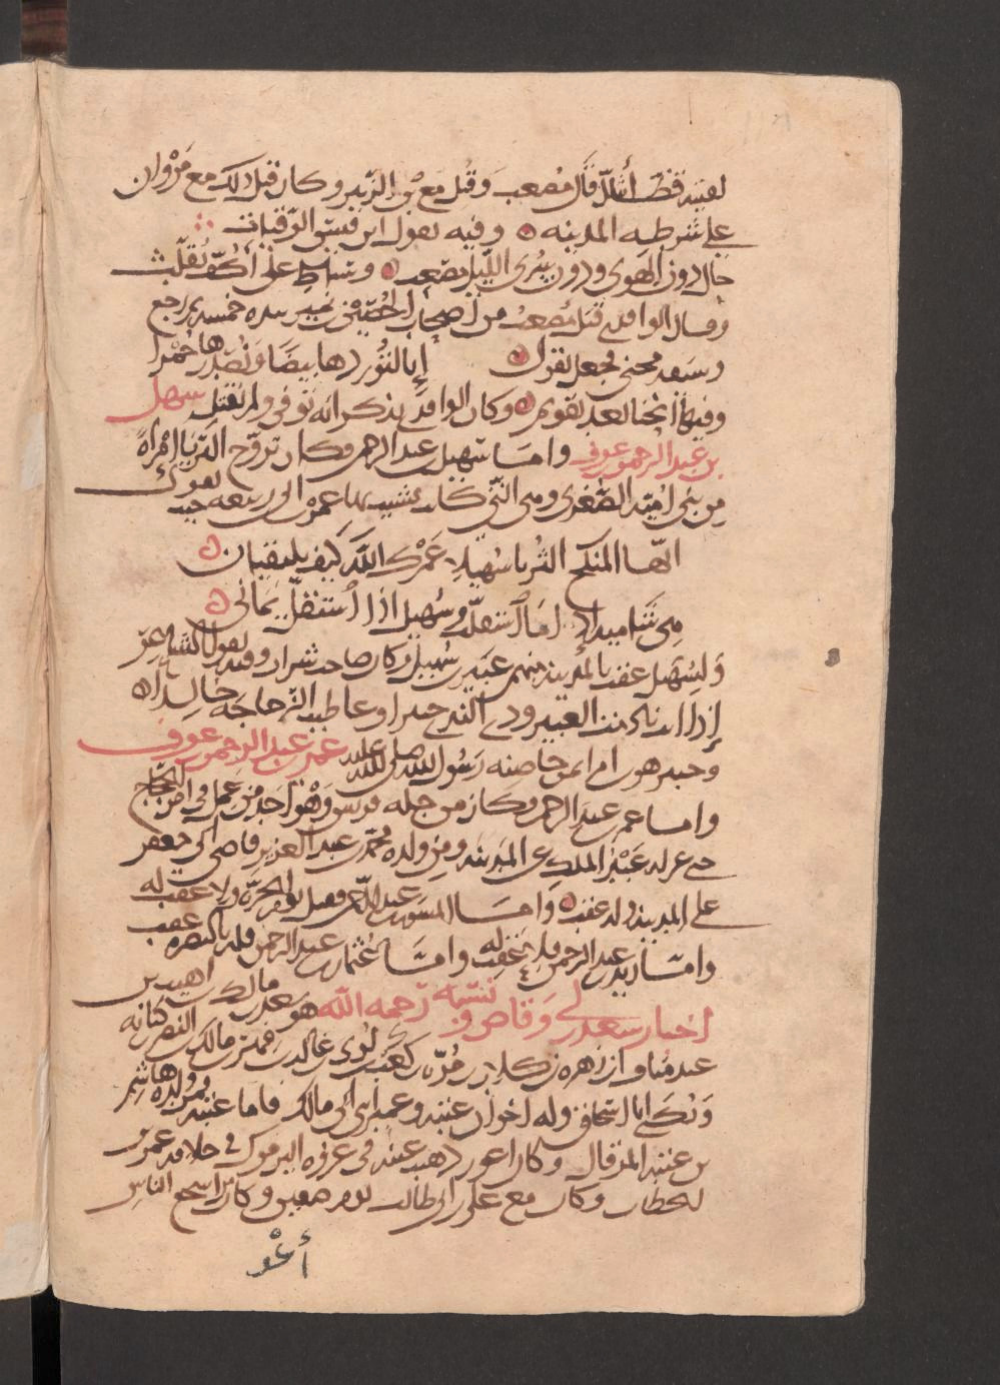 لقيته قط الا قال مصعب وقتل مع بن الزبير وكان قبل ذلك مع مروان
على شرطه المدينه ۞ وفيه يقول ابن قيس الرقيات
حال دون الهوى ودون سرى الليل مصعب ۞ وسياط على اكف تقلب
وقال الواقدي قتل مصعب من اصحاب الحصين بن نمير بيده خمسه ثم رجع
وسيفه محنى فجعل يقول ۞ إنا لنوردها بيضا ونصدرها حمرا
وفيها انحنا بعد تقويم ۞ وكان الواقدي يذكر انه توفى ولم يقتل سهيل
بن عبد الرحمن بن عوف واما سهيل بن عبد الرحمن فكان تزوج الثريا امراة
من بنى امية الصغرى وهى التى كان يشبب بها عمر بن ابى ربيعه حيث يقول
ايها المنكح الثريا سهيلا عمرك الله كيف يلتقيان ۞
هى شاميه اذا ما استقلت وسهيل اذا استقل يمانى ۞
ولسهيل عقب بالمدينه منهم عتير بن سهيل وكان صاحب شراب وفيه يقول الشاعر
إذا انت نادمت العتير وذا الندى جبيرا وعاطيت الزجاجه خالدا ۞
وجبير هو بن ام ايمن حاضنه رسول الله صلى الله عليه عمر بن عبد الرحمن بن عوف
واما عمر بن عبد الرحمن فكان من جله قريش وهو احد من عمل فى امر الحجاج
حتى عزله عبد الملك عن المدينه ومن ولده محمد بن عبد العزيز قاضى ابى جعفر
على المدينه وله عقب ۞ واما المسور بن عبد الرحمن فقتل يوم الحرة ولا عقب له
واما زيد بن عبد الرحمن فلا عقب له واما عثمان بن عبد الرحمن فله بالبصره عقب
اخبار سعد بن أبي وقاص ونسبه رحمه الله هو سعد بن مالك بن اهيب بن
عبد مناف بن زهره بن كلاب بن مره بن كعب بن لوى بن غالب بن فهر بن مالك بن النضر بن كنانه
ويكنى ابا اسحاق وله اخوان عتبه وعمير ابنى ابى مالك فاما عتبه فمن ولده هاشم
بن عتبه المرقال وكان اعور ذهبت عينه فى غزوه اليرموك فى خلافه عمر بن
الخطاب وكان مع على بن ابى طالب يوم صفين وكان من اشجع الناس
أعو